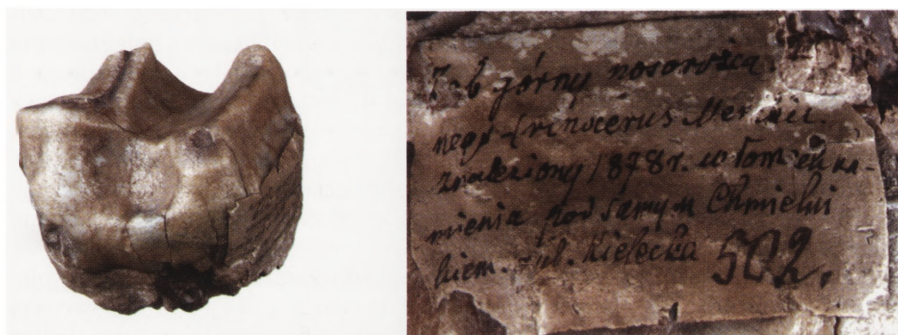 Ząb górny nosorożca
nego Erinocerus Merckii.
znaleziony 1878 r. w łomach ka-
mienia pod samym Chmielni
kiem. - ul. Kielecka 502.